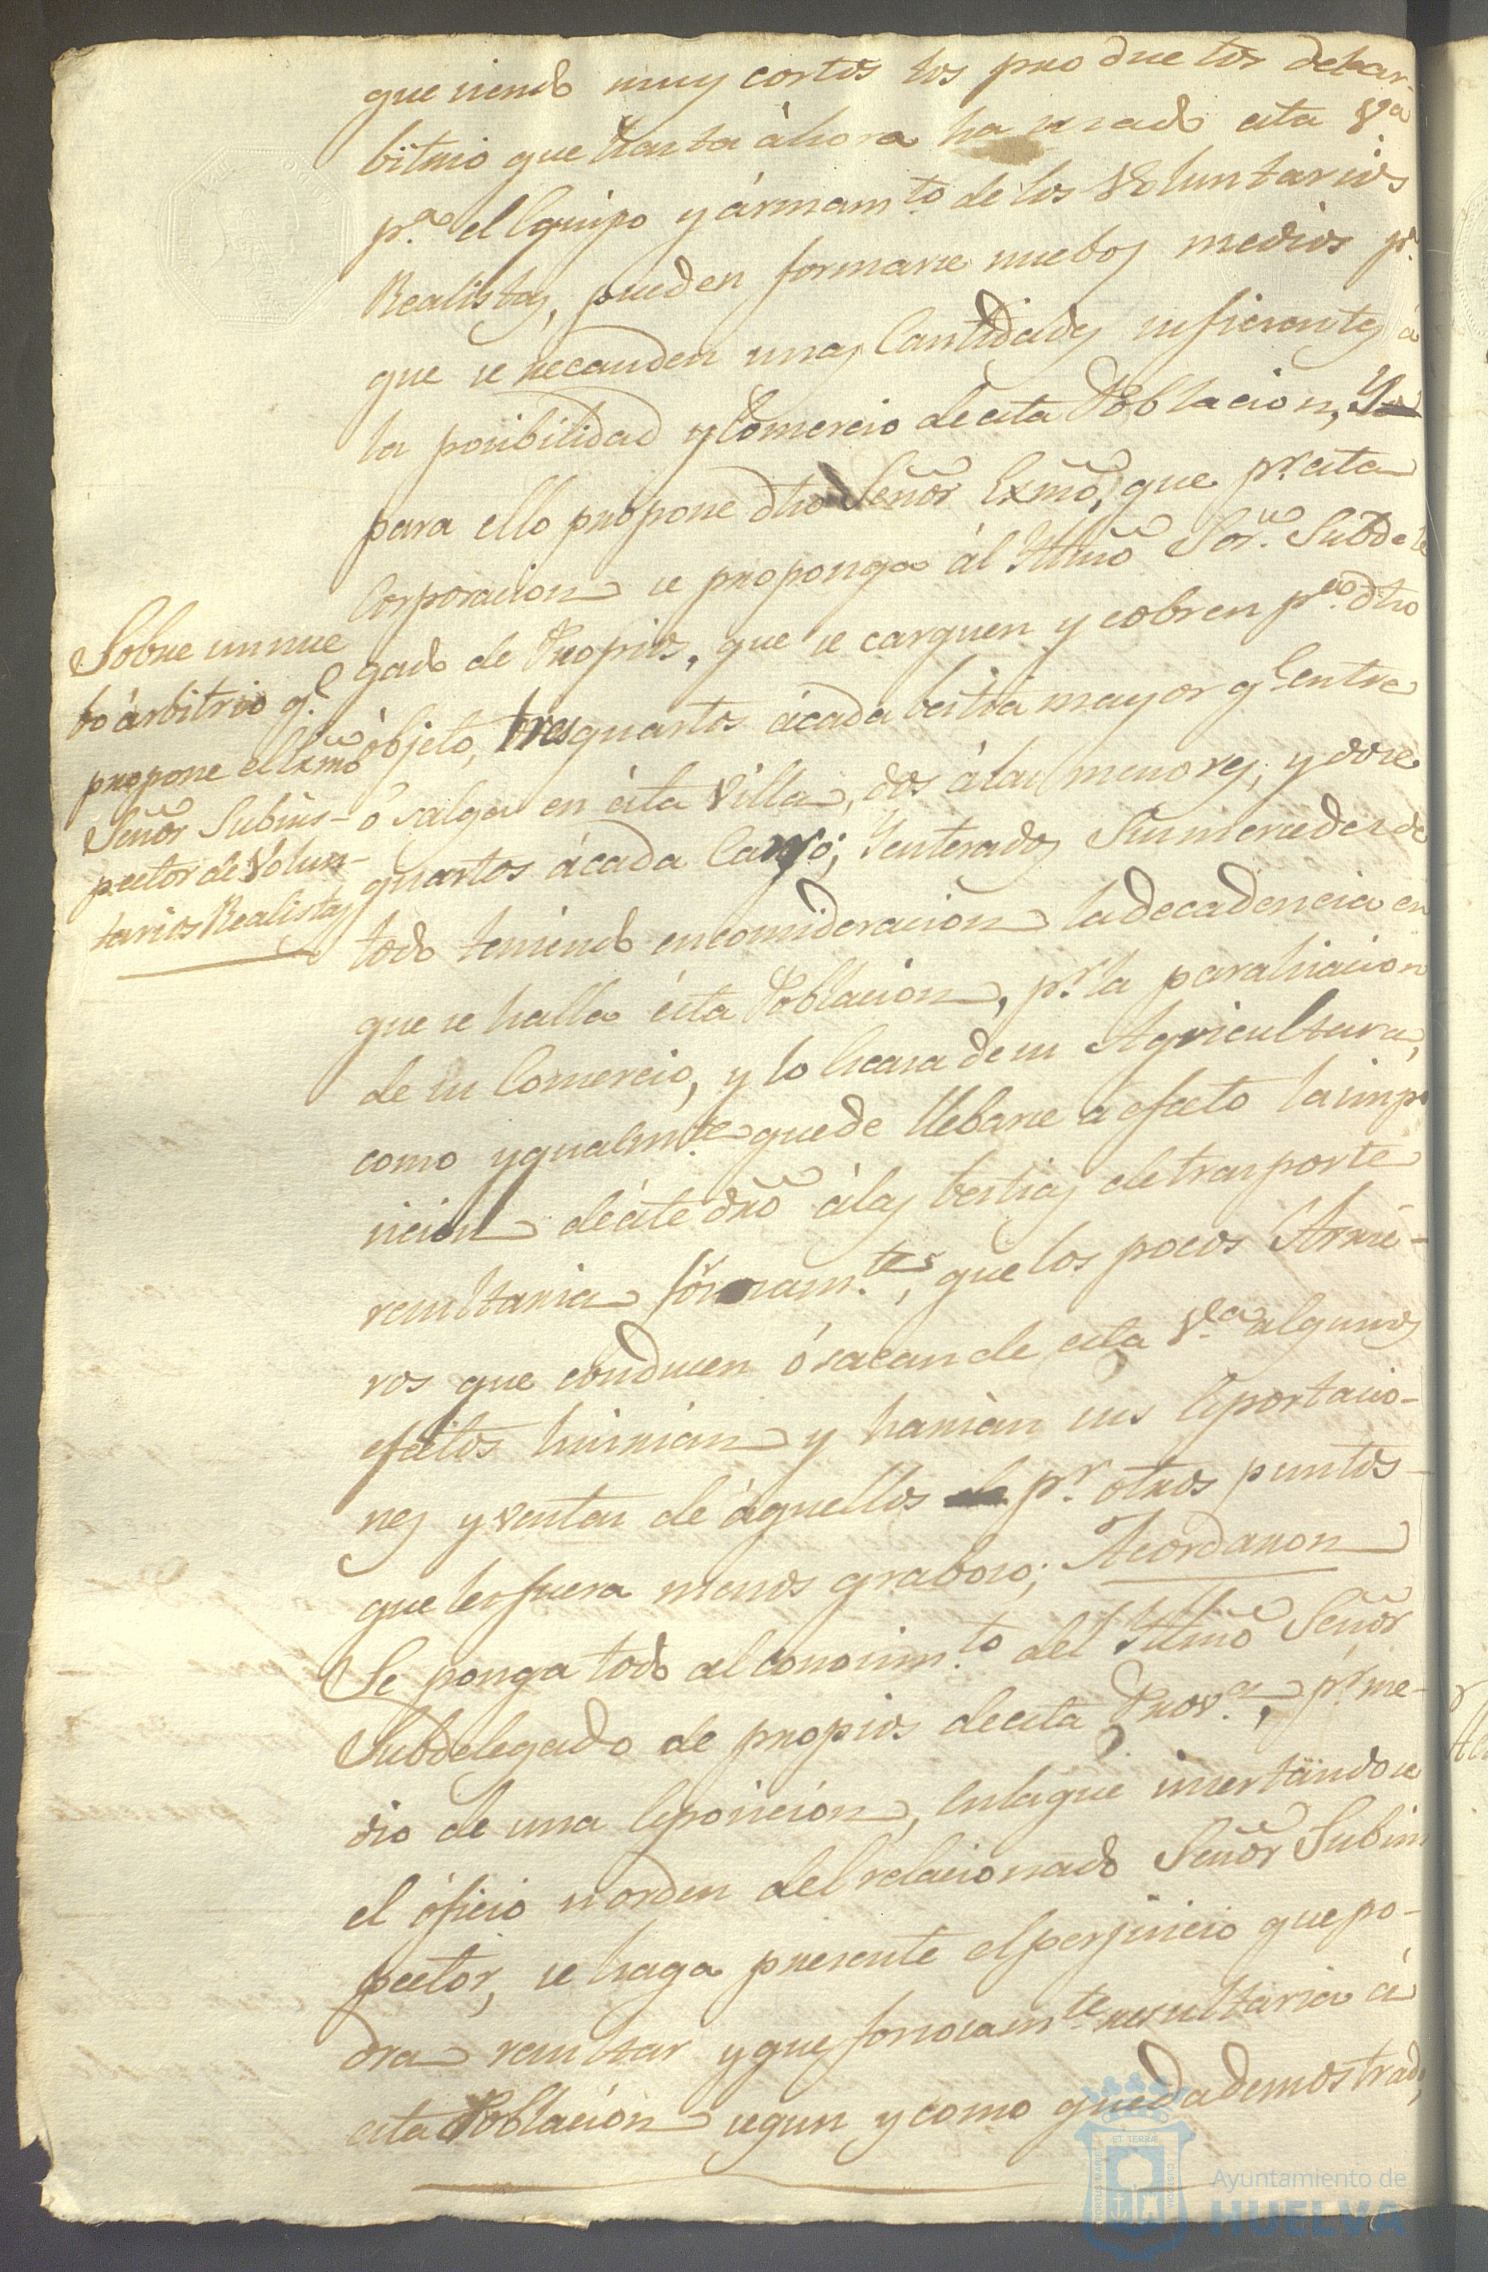 que siendo muy cortos los productos del ar-
bitrio que hasta áhora ha usado esta Vª
pª el Equipo y ármamto de los Voluntarios
Realistas, pueden formarse nuebos medios pª
que se recauden unas Cantidades suficientes á
la posibilidad y Comercio de esta Poblacion, Y
para ello propone dho Señor Exmo, que pr esta
Corporacion se proponga ál Ytmo Sor. Subdele
gado de Propios, que se carguen y cobren pª dho
óbjeto, tres quartos ácada bestia mayor q entre
ó salga en ésta Villa, dos álas menores, y doce
quartos ácada Carro; Y enterados Sus mercedes de
todo teniendo en consideracion la decadencia en
que se halla ésta Poblacion, pr la paralisacion
de su Comercio, y lo écasa de su Agricultura,
como ygualmte que de llebarse a efecto la impo
sicion de éste dro álas bestias de trasporte
resultaria forsosamte, que los pocos Arrie-
ros que conducen ó sacan de esta Vª algunos
efectos huirian y harian sus Esportacio-
nes y ventas de áquellos pr otros puntos
que les fuera menos graboso; Acordaron
Se ponga todo al conosimto del Yltmo Señor
Subdelegado de propios de esta Prova, pr me-
dio de una Esposicion, en la que insertándose
el óficio u orden del relacionado Señor Subins
pector, se haga presente el perjuicio que po-
dra resultar y que forsosamte resultaria á
esta Poblacion segun y como queda demostrado,
Sobre un nue
bo árbitrio q.e
propone el Exmo
Señor Subins-
pector de Volun-
tarios Realistas
Ayuntamiento de
HUELVA